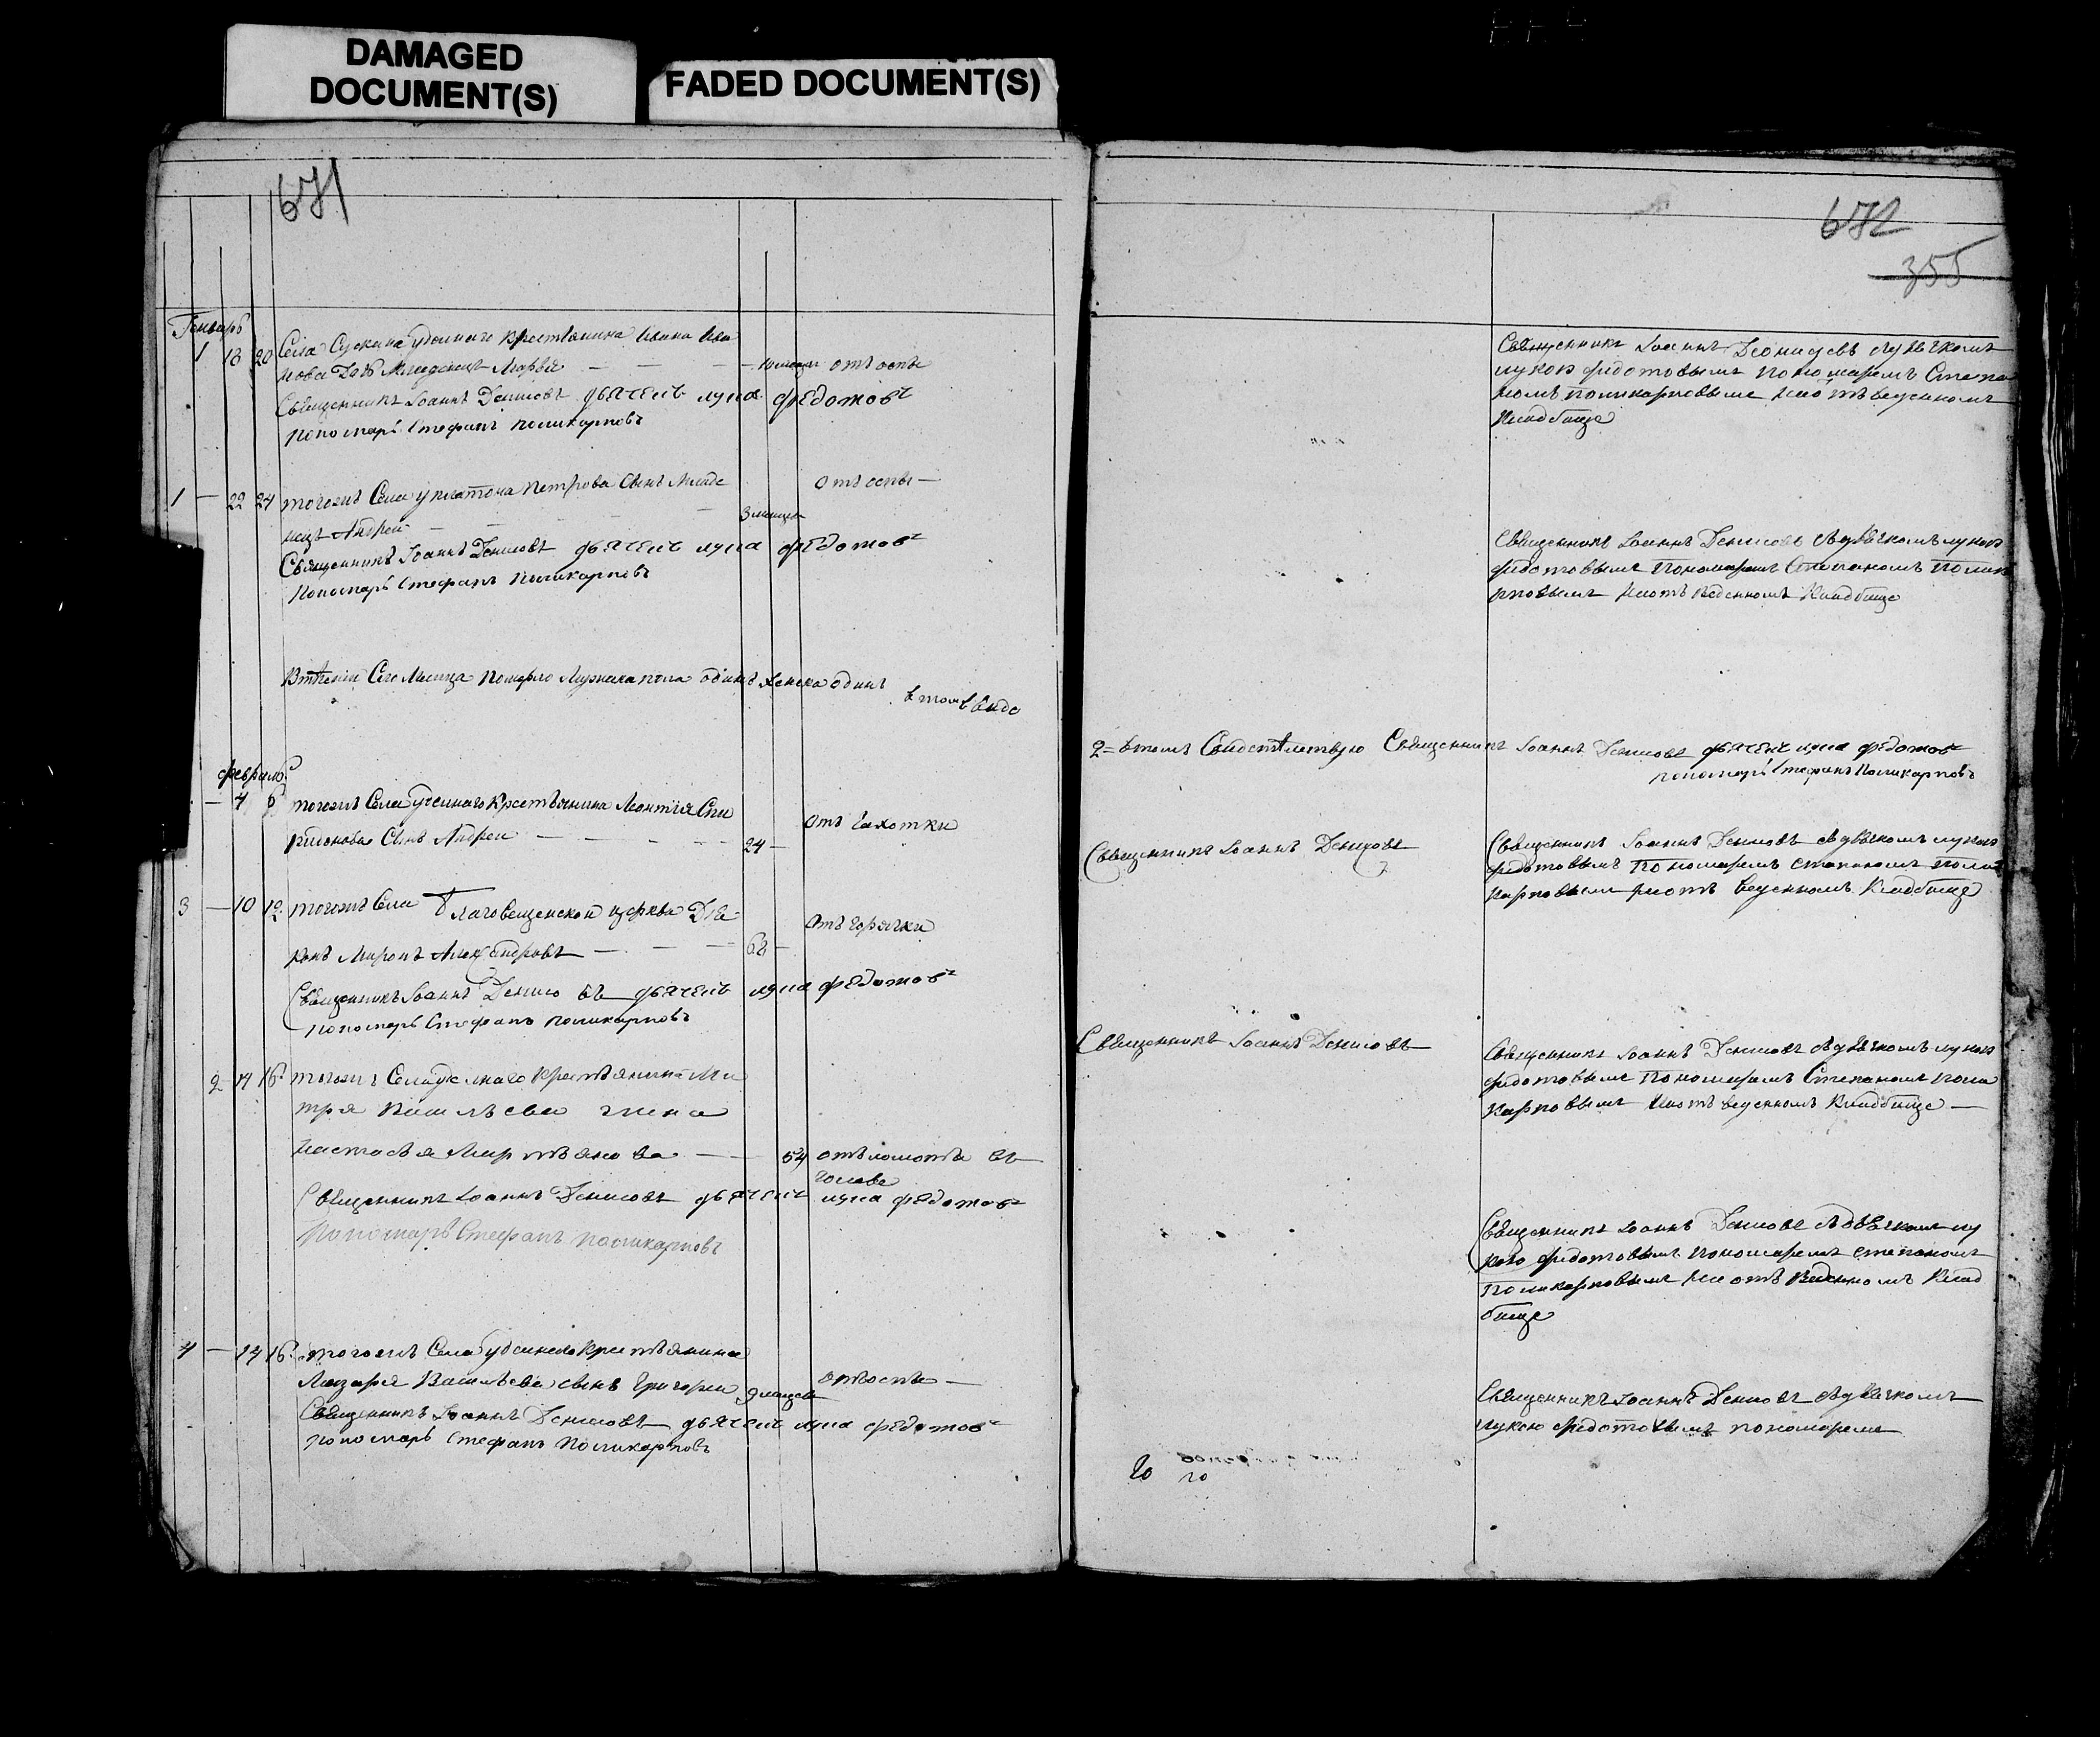 DAMAGED
DOCUMENT(S)
FADED DOCUMENT(S)
671
Генварь
1 18 20 Села Сускана удельнаго крестьянина Ивана Ива
нова дочь младенец Марфа — — — 10 месяцов отъ оспы
Священникъ Iоаннъ Денисовъ дьячекъ лука федотовъ
пономарь Стефанъ поликарповъ
1 — 22 24 тогожъ Села у платона петрова Сынъ младе
нецъ Андрей — — — 3 месяца
отъ оспы —
Священникъ Iоаннъ Денисовъ дьячекъ лука федотовъ
пономарь Стефанъ поликарповъ
Втечении Сего Месяца померло Мужеска пола одинъ женска одинъ
в томъ
февраль
— 4 6 тогожъ Села удельнаго крестьянина Леонтия Спи
ридонова Сынъ Андрей — — — 24 —
отъ чахотки
3 — 10 12 тогожъ Села Благовещенской церкви Дья
конъ Миронъ Александровъ — — — 68 —
отъ горячки
Священникъ Iоаннъ Денисовъ дьячекъ лука федотовъ
пономарь Стефанъ поликарповъ
2 14 16 тогожъ Села удельнаго крестьянина
васильева жена
настасья Мартьянова — — 54 отъ ломоты въ
голове
Священникъ Iоаннъ Денисовъ дьячекъ лука федотовъ
пономарь Стефанъ поликарповъ
4 — 14 16 тогожъ Села удельнаго крестьянина
Лазаря Васильева сынъ Григорей 9 месяцевъ
отъ оспы —
Священникъ Iоаннъ Денисовъ дьячекъ лука федотовъ
пономарь Стефанъ поликарповъ
672
355
Священникъ Iоаннъ Денисовъ здьячкомъ
лукою федотовымъ пономаремъ Степа
номъ поликарповымъ на отведенномъ
кладбище
Священникъ Iоаннъ Денисовъ здьячкомъ лукою
федотовымъ пономаремъ Степаномъ полика
рповымъ на отведенномъ кладбище
2= втомъ Свидетельствую Священникъ Iоаннъ Денисовъ дьячекъ лука федотовъ
пономарь Стефанъ Поликарповъ
Священникъ Iоаннъ Денисовъ
Священникъ Iоаннъ Денисовъ здьячкомъ лукою
федотовымъ пономаремъ степаномъ поли
карповымъ на отведенномъ кладбище
Священникъ Iоаннъ Денисовъ
Священникъ Iоаннъ Денисовъ здьячкомъ лукою
федотовымъ пономаремъ Степаномъ поли
карповымъ на отведенномъ кладбище —
Священникъ Iоаннъ Денисовъ здьячкомъ лу
кою федотовымъ пономаремъ степаномъ
поликарповымъ на отведенномъ клад
бище
Священникъ Iоаннъ Денисовъ здьячкомъ
лукою федотовымъ пономаремъ